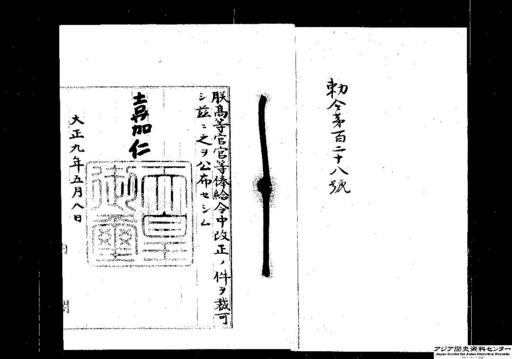 勅令第百二十八號
朕高等官官等俸給令中改正ノ件ヲ裁可
シ茲ニ之ヲ公布セシム
嘉仁
天皇御璽
大正九年五月八日
内閣
アジア歴史資料センター
Japan Center for Asian Historical Records